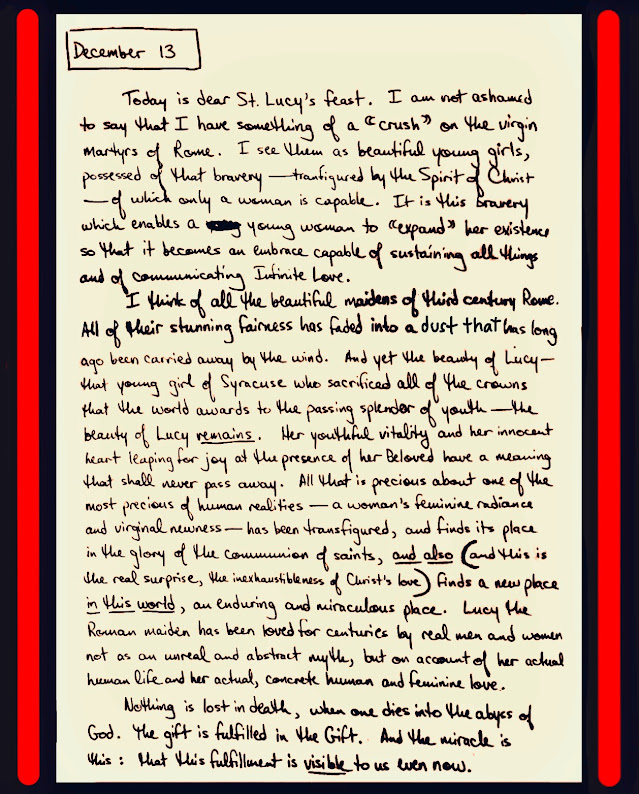 December 13
Today is dear St. Lucy's feast. I am not ashamed
to say that I have something of a "crush" on the virgin
martyrs of Rome. I see them as beautiful young girls,
possessed of that bravery — tranfigured by the Spirit of Christ
— of which only a woman is capable. It is this bravery
which enables a young woman to "expand" her existence
so that it becomes an embrace capable of sustaining all things
and of communicating Infinite Love.
I think of all the beautiful maidens of third century Rome.
All of their stunning fairness has faded into a dust that has long
ago been carried away by the wind. And yet the beauty of Lucy —
that young girl of Syracuse who sacrificed all of the crowns
that the world awards to the passing splendor of youth — the
beauty of Lucy remains. Her youthful vitality and her innocent
heart leaping for joy at the presence of her Beloved have a meaning
that shall never pass away. All that is precious about one of the
most precious of human realities — a woman's feminine radiance
and virginal newness — has been transfigured, and finds its place
in the glory of the communion of saints, and also (and this is
the real surprise, the inexhaustibleness of Christ's love) finds a new place
in this world, an enduring and miraculous place. Lucy the
Roman maiden has been loved for centuries by real men and women
not as an unreal and abstract myth, but on account of her actual
human life and her actual, concrete human and feminine love.
Nothing is lost in death, when one dies into the abyss of
God. The gift is fulfilled in the Gift. And the miracle is
this: that this fulfillment is visible to us even now.